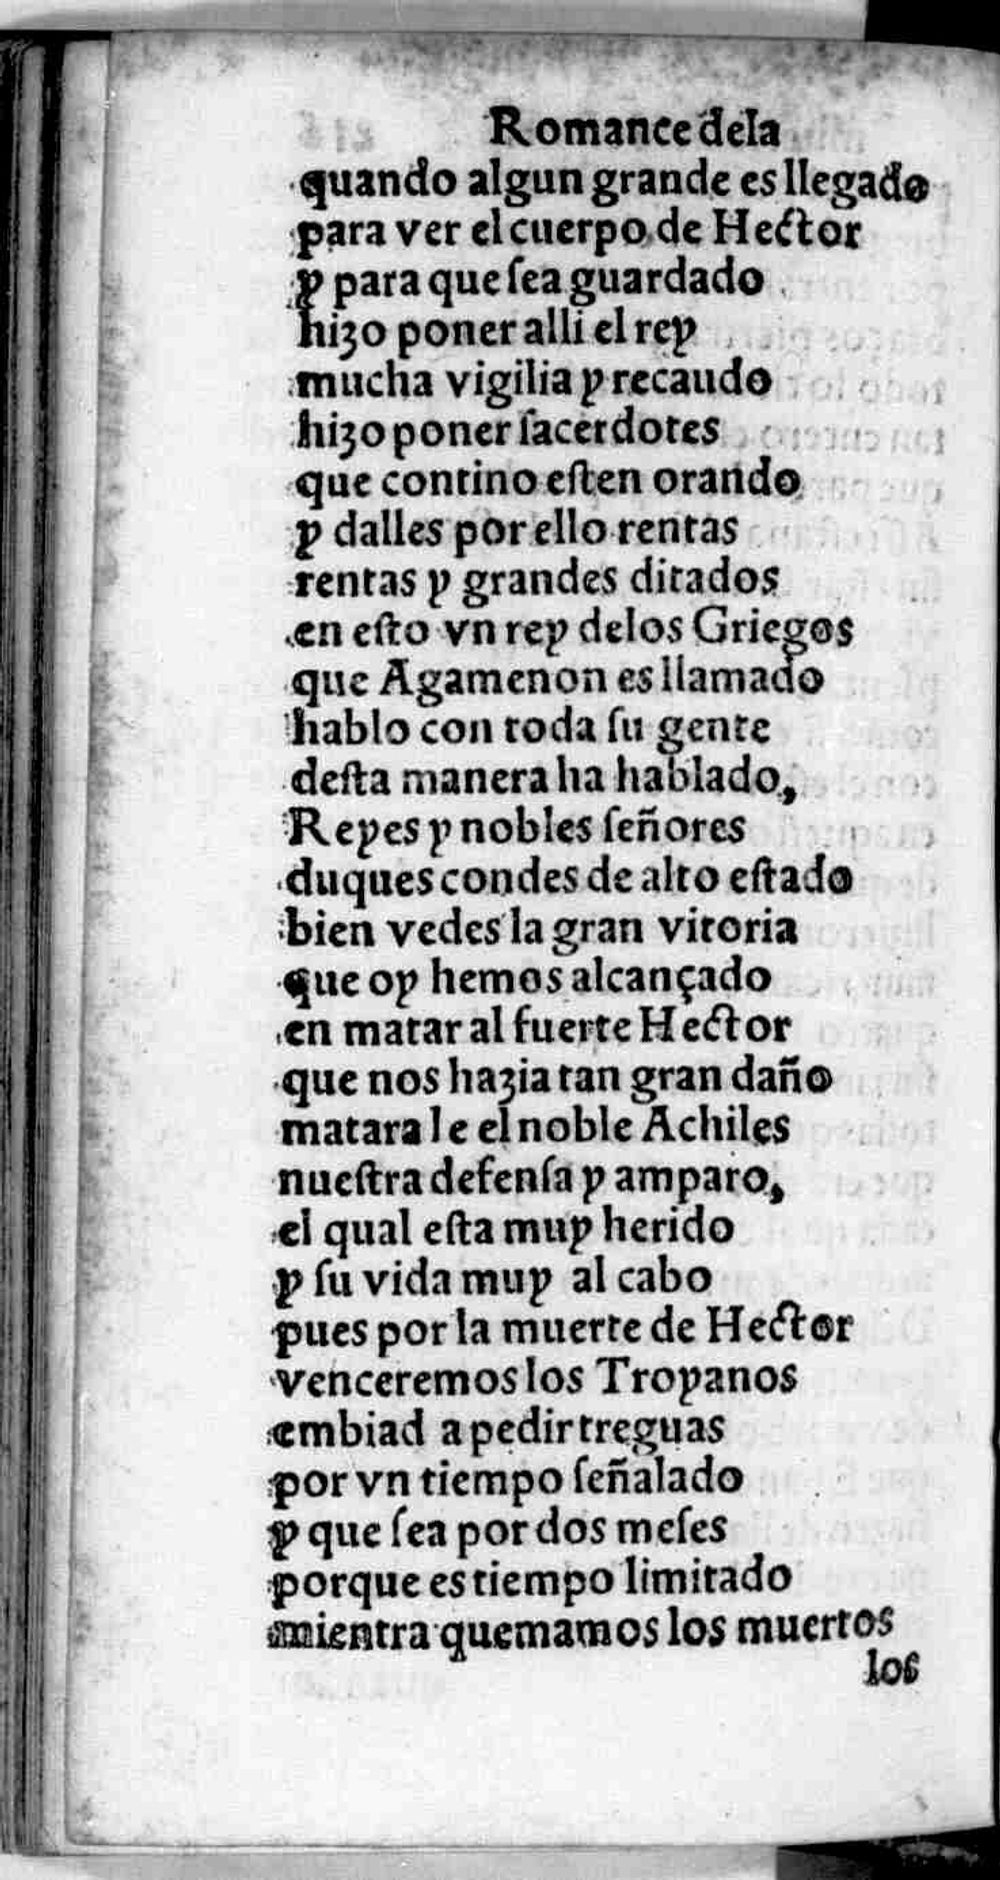 Romance dela
quando algun grande es llegado
para ver el cuerpo de Hector
y para que ſea guardado
hizo poner alli el rey
mucha vigilia y recaudo
hizo poner ſacerdotes
que contino eſten orando
y dalles por ello rentas
rentas y grandes ditados
en eſto vn rey delos Griegos
que Agamenon es llamado
hablo con toda ſu gente
deſta manera ha hablado,
Reyes y nobles ſeñores
duques condes de alto eſtado
bien vedes la gran vitoria
que oy hemos alcançado
en matar al fuerte Hector
que nos hazia tan gran daño
matara le el noble Achiles
nueſtra defenſa y amparo,
el qual eſta muy herido
y ſu vida muy al cabo
pues por la muerte de Hector
venceremos los Troyanos
embiad a pedir treguas
por vn tiempo ſeñalado
y que ſea por dos meſes
porque es tiempo limitado
mientra quemamos los muertos
los